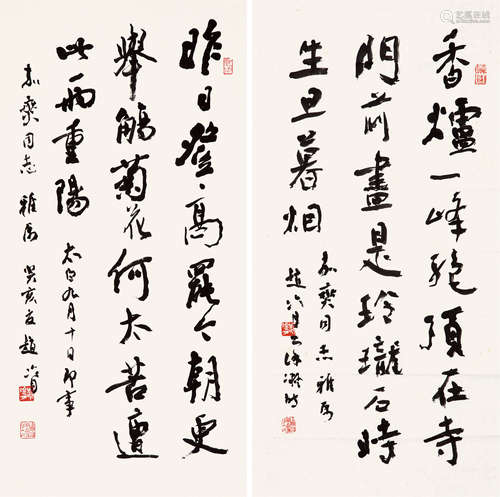 香爐一峰絕頂在寺
門前盡是玲瓏石時
生旦暮烟
同志雅屬
趙冷月
昨日登高罷今朝更
舉觴菊花何太苦遭
此兩重陽
太白九月十日即事
同志 雅屬 癸亥夏趙冷月